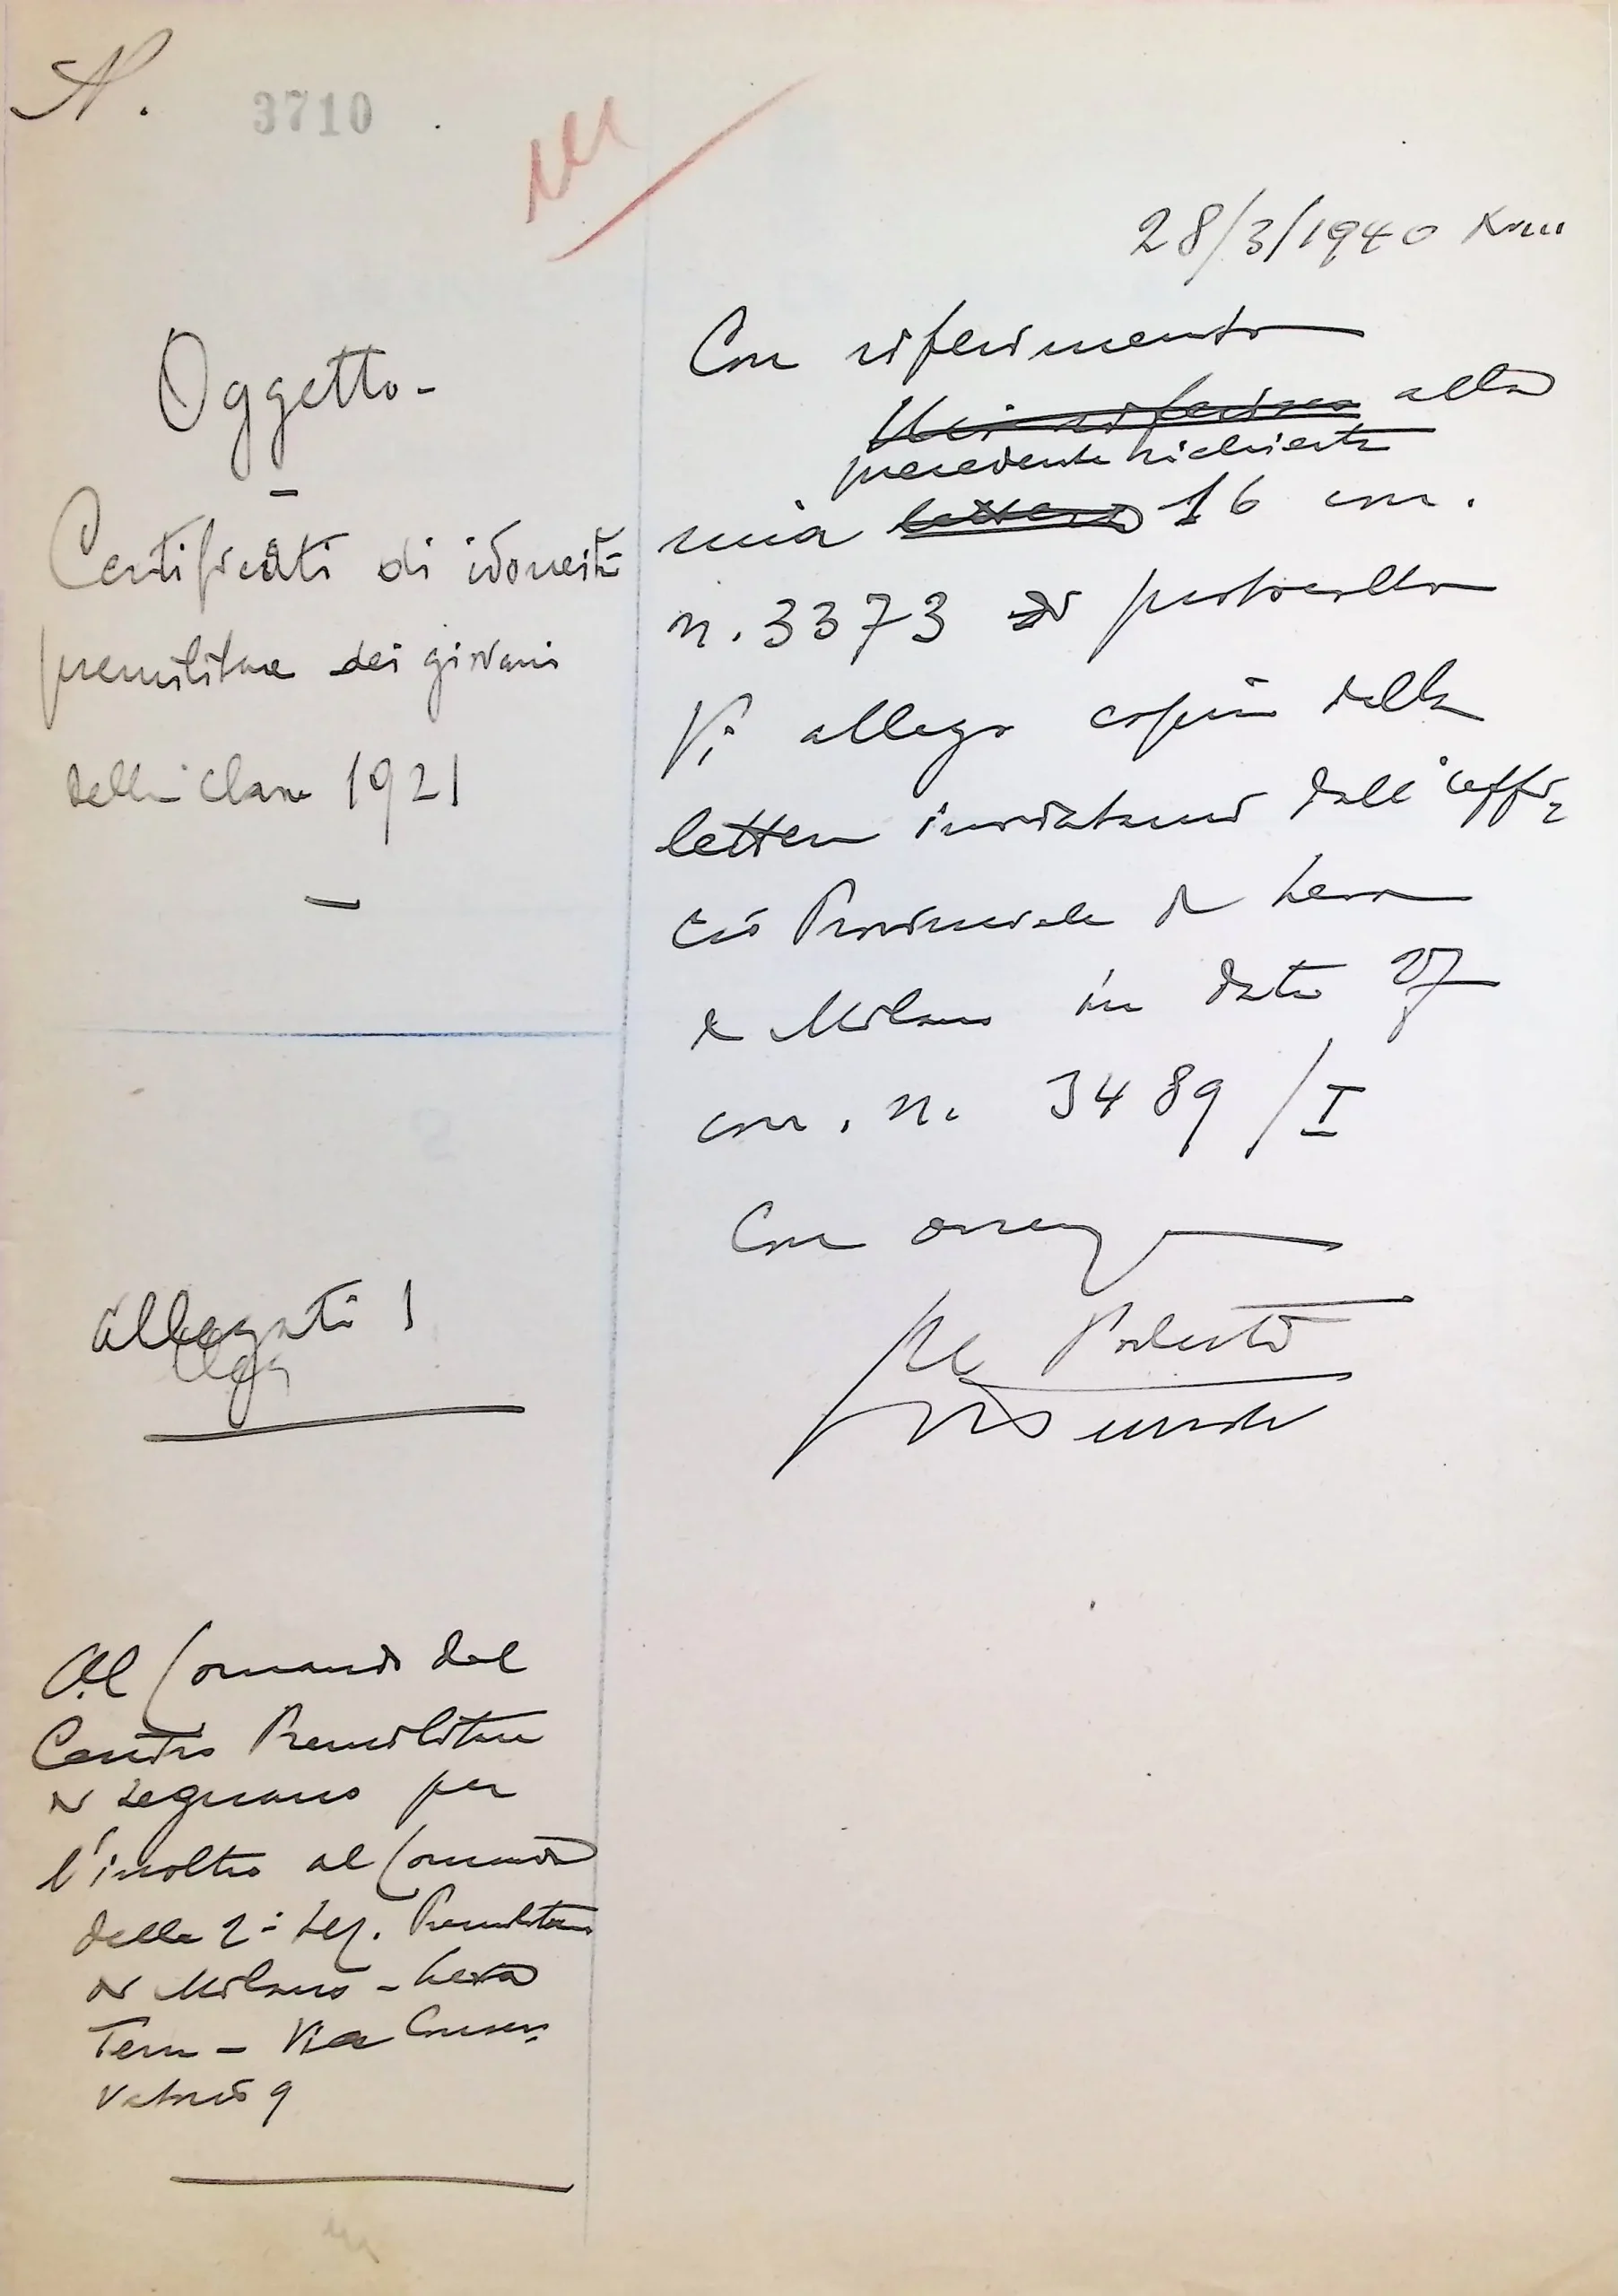 N. 3710
28/3/1940 XVIII
Oggetto -
Certificati di idoneità
premilitare dei giovani
della classe 1921
Allegati 1
Al Comando del
Centro Premilitare
di Legnano per
l'inoltro al Comando
della 2ª Leg. Premilitare
di Milano - Leva
Terra - Via Conser-
vatorio 9
Con riferimento
Mi riferisco alla
precedente richiesta
mia lettera 16 corr.
n. 3373 di protocollo
Vi allego copia della
lettera inviatami dall'Uffi-
cio Provinciale di Leva
di Milano in data 27
corr. n. 3489/I
Con osservanza
Il Podestà